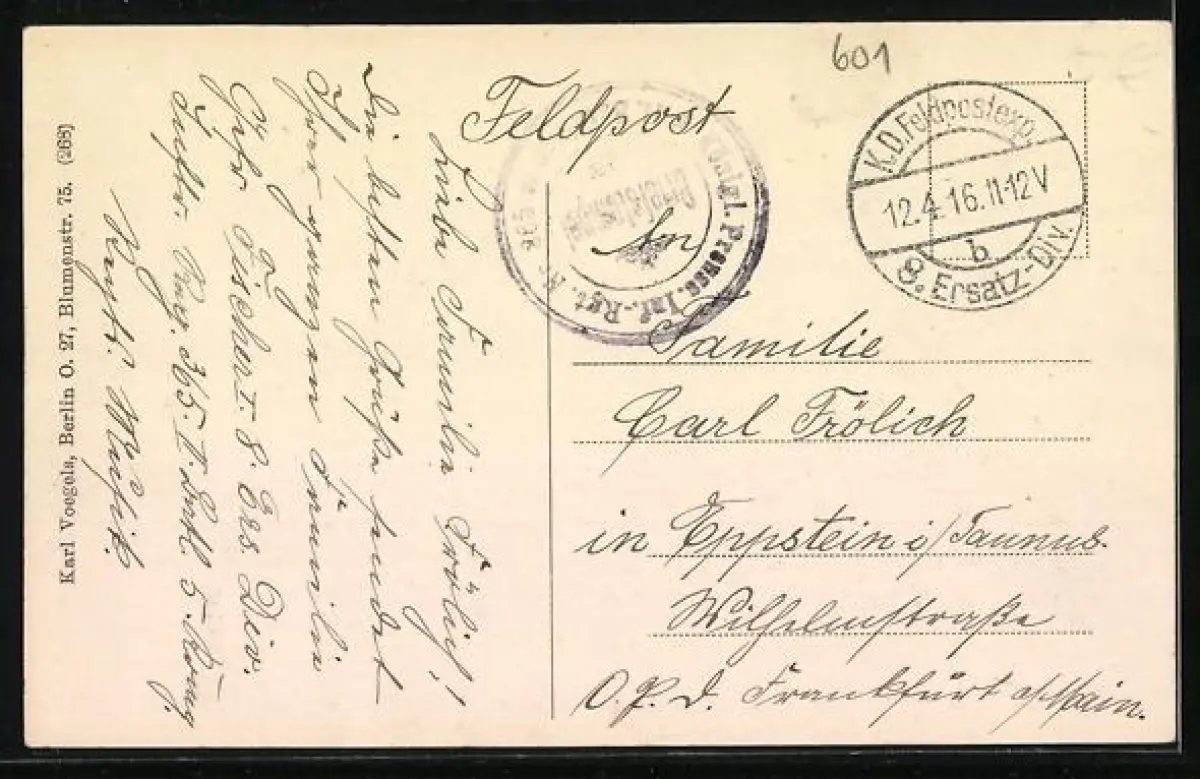 601
Feldpost
K.D. Feldpostexp.
12.4.16.11-12V
b
8. Ersatz-Div.
Königl. Preuss. Inf.-Rgt. No.
Briefstempel
An
Familie
Carl Frölich
in Eppstein i/Taunus.
Wilhelmstraße
O.P.D. Frankfurt a/Main.
Liebe Familie Frölich!
Die besten Grüße sendet
Ihrer ganzen Familie
Gefr Fischer I. 8. Ers Div.
Inftr. Reg. 365. II. Batl. 5. Komp.
Regts. Musik.
Karl Voegels, Berlin O. 27, Blumenstr. 75. (268)